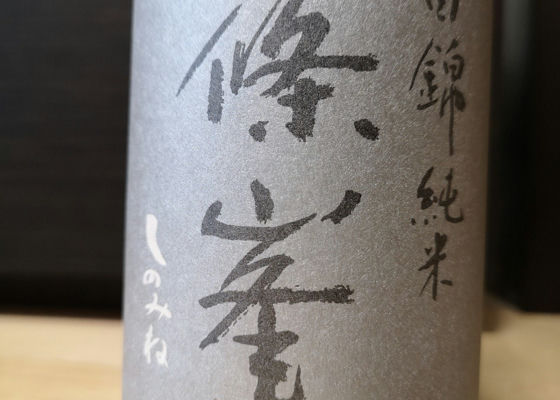 田錦 純米
篠峯
しのみね